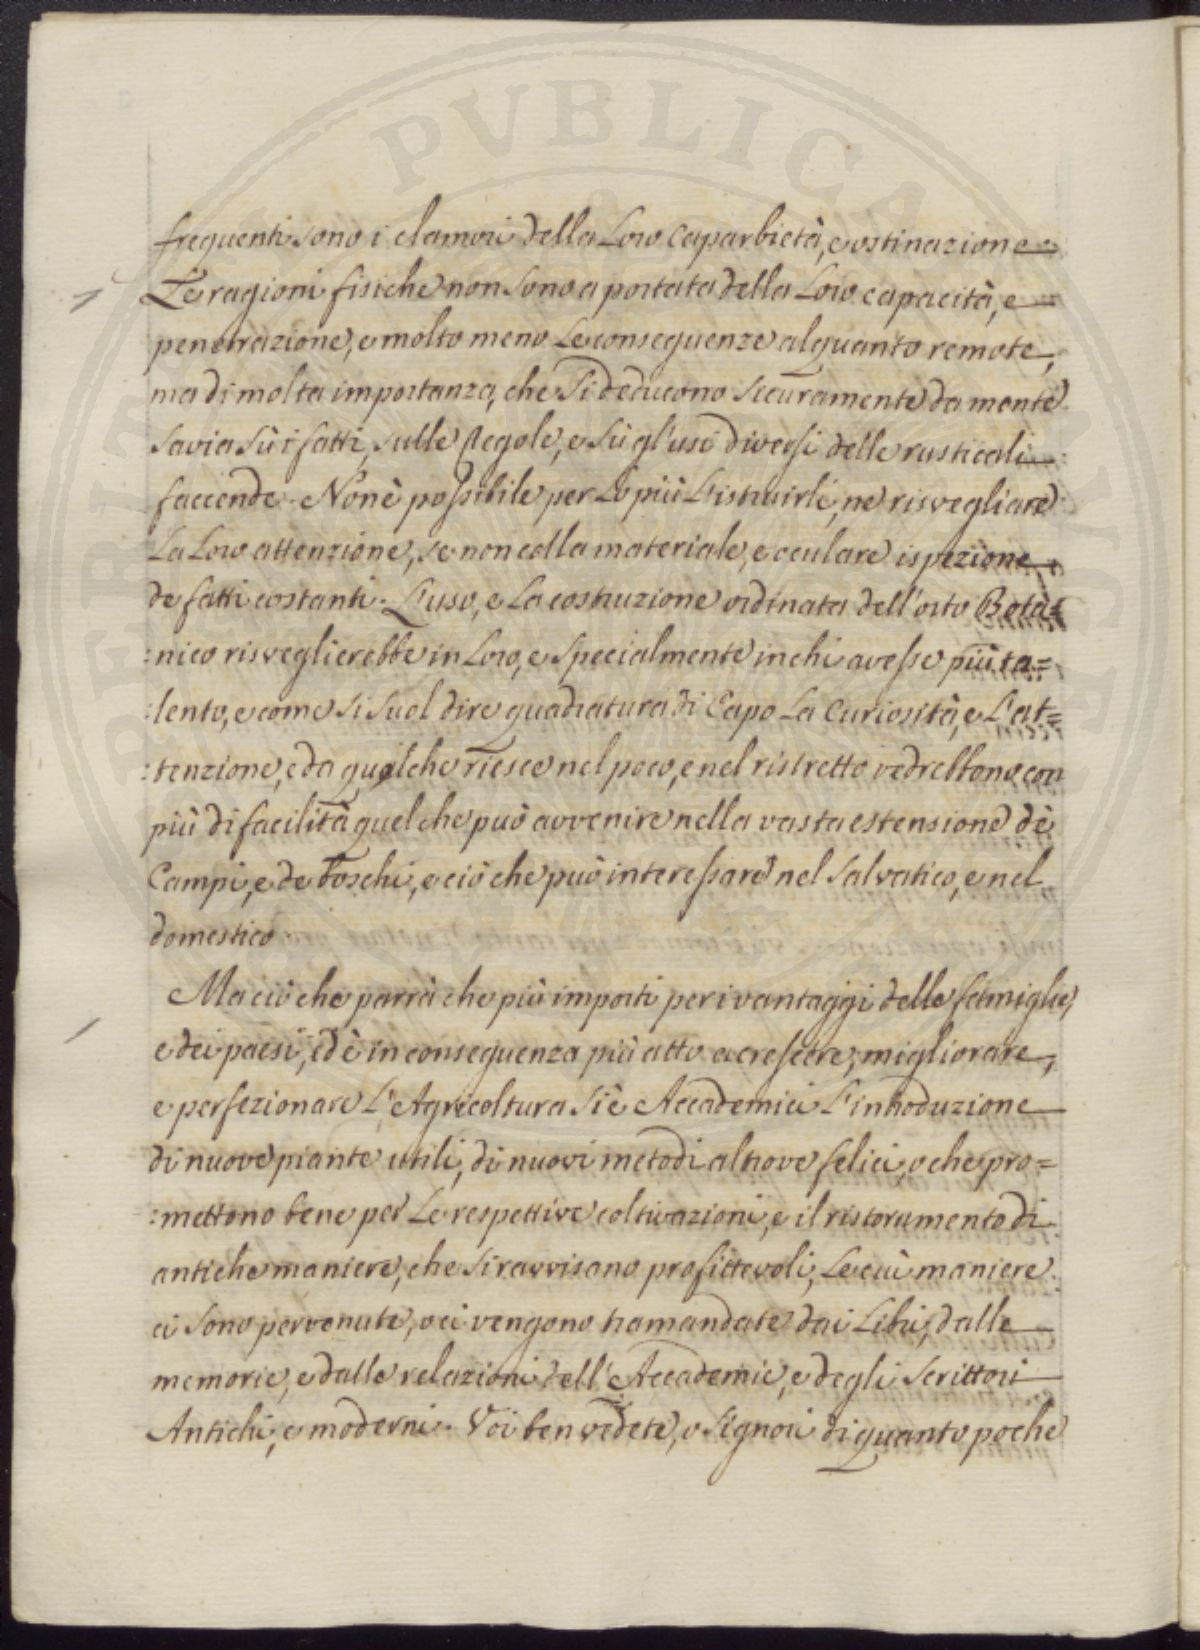 PVBLICA
frequenti sono i clamori della Loro caparbietà, e ostinazione
Le ragioni fisiche non sono a portata della Loro capacità, e
penetrazione, e molto meno Le conseguenze alquanto remote,
ma di molta importanza, che Si deducono sicuramente da mente
savia sù i fatti, sulle Regole, e sù gl'usi diversi delle rusticali
faccende. Non è possibile per Lo più L'istruirli, ne risvegliare
La Loro attenzione, se non colla materiale, e oculare ispezione
de fatti costanti. L'uso, e La costruzione ordinata dell'orto Botà=
:nico risveglierebbe in Loro, e specialmente in chi avesse più ta=
:lento, e come si suol dire quadratura di Capo La Curiosità, e L'at=
:tenzione, e da quelche riesce nel poco, e nel ristretto vedrebbono con
più di facilità quel che può avvenire nella vasta estensione dè
Campi, e de boschi, e ciò che può interessare nel salvatico, e nel
domestico.
Ma ciò che parrà che più importi per i vantaggi delle famiglie,
e dei paesi, ed è in conseguenza più atto a crescere, migliorare,
e perfezionare L'Agricoltura Si è Accademici L'introduzione
di nuove piante utili, di nuovi metodi altrove felici, o che pro=
:mettono bene per Le respettive coltivazioni, e il ristoramento di
antiche maniere, che si ravvisano profittevoli, Le cui maniere
ci sono pervenute, o ci vengono tramandate dai Libri, dalle
memorie, e dalle relazioni dell'Accademie, e degli Scrittori
Antichi, e moderni. Voi ben vedete, o Signori di quanto poche